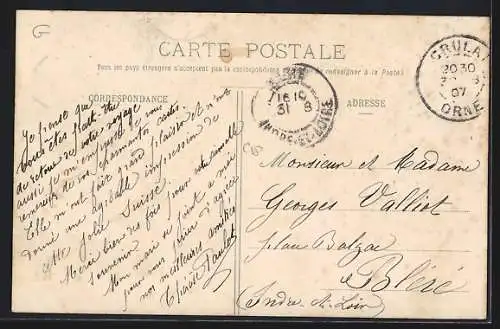 G
CARTE POSTALE
Tous les pays étrangers n'acceptent pas la correspondance
se renseigner à la Poste)
CORRESPONDANCE
ADRESSE
CRULAI
20 30
07
ORNE
16 10
31 8
INDRE-ET-LOIRE
Je pense que
vous êtes
de retour de votre voyage
aussi je m'empresse de vous
remercier de vos charmantes cartes.
Elle m'ont fait grand plaisir et m'ont
donné une agréable impression de
cette jolie Suisse.
Merci bien des fois pour votre aimable
souvenir.
Mon mari se joint à moi
pour vous prier d'agréer
nos meilleures amitiés
Monsieur et Madame
Georges Valliot
place Balzac
à Bléré
(Indre et Loire)